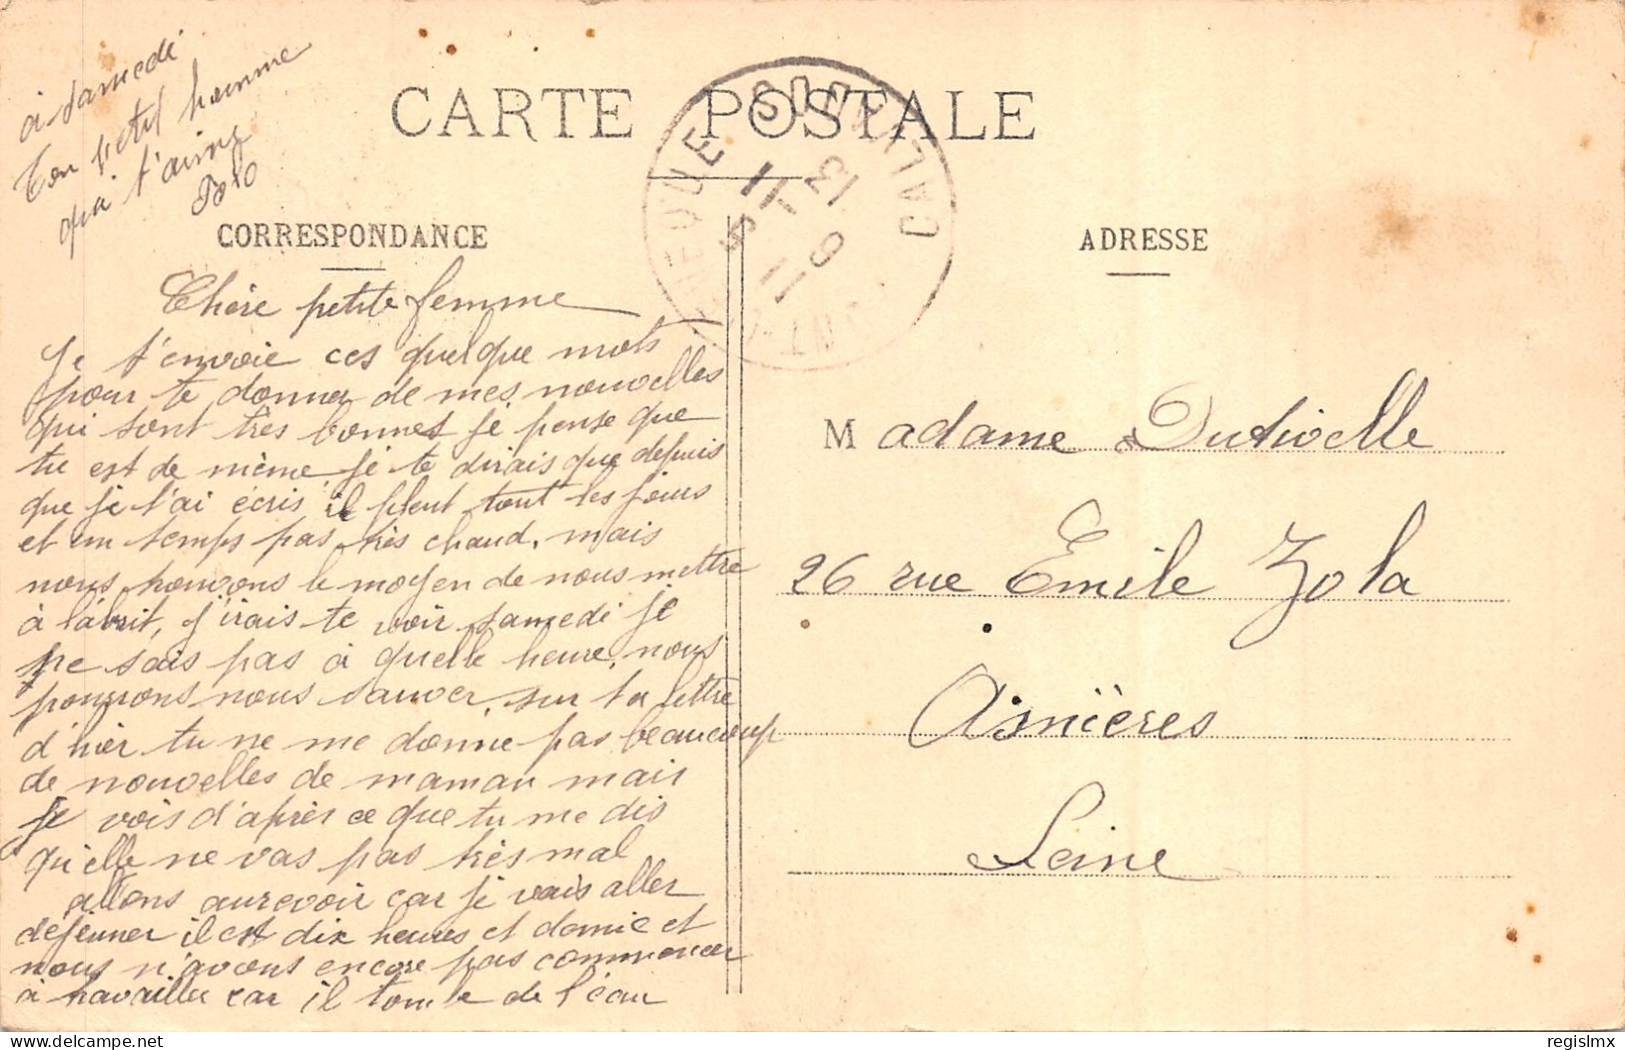 à samedi
Ton petit homme
qui t'aime
CARTE POSTALE
CORRESPONDANCE
ADRESSE
Chère petite femme
Je t'envoie ces quelque mots
pour te donner de mes nouvelles
qui sont très bonnes je pense que
tu est de même, je te dirais que depuis
que je t'ai écris, il pleut tout les jours
et un temps pas très chaud. mais
nous trouvons le moyen de nous mettre
à l'abrit, j'irais te voir samedi je
ne sais pas à quelle heure, nous
pourrons nous sauver, sur ta lettre
d'hier tu ne me donne pas beaucoup
de nouvelles de maman mais
je vois d'après ce que tu me dis
qu'elle ne vas pas très mal
allons aurevoir car je vais aller
déjeuner il est dix heures et demie et
nous n'avons encore pas commencer
à travailler car il tombe de l'eau
Madame Dutivelle
26 rue Emile Zola
Asnières
Seine
regislmx